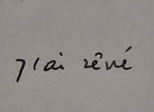 j'ai rêvé